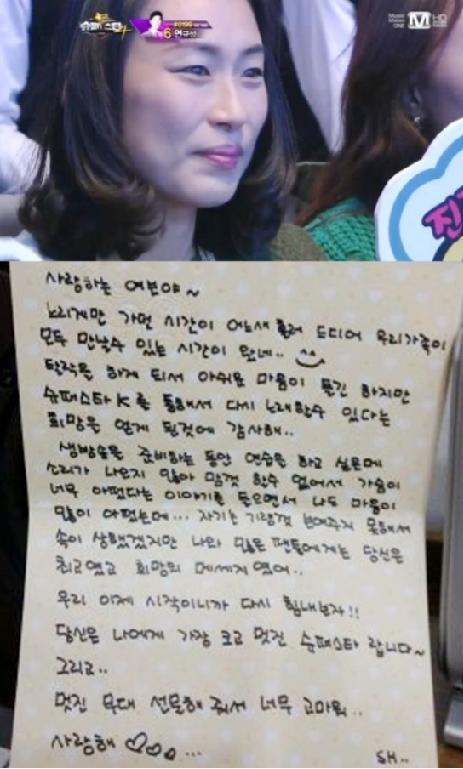 슈퍼스타K
6 연규성
M HD
진
사랑하는 여분야~
느리게만 가던 시간이 어느새 흘러 드디어 우리가족이
모두 만날수 있는 시간이 왔네..
탈락을 하게 되서 아쉬운 마음이 들긴 하지만
슈퍼스타K를 통해서 다시 노래할수 있다는
희망을 얻게 된것에 감사해..
생방송을 준비하는 동안 연습을 하고 싶은데
소리가 나오지 않아 맘껏 할수 없어서 가슴이
너무 아팠다는 이야기를 들으면서 나도 마음이
많이 아팠는데... 자기는 기량껏 보여주지 못해서
속이 상했겠지만 나와 많은 팬들에게는 당신은
최고였고 희망의 메세지였어..
우리 이제 시작이니까 다시 힘내보자!!
당신은 나에게 가장 크고 멋진 슈퍼스타 랍니다~
그리고..
멋진 무대 선물해 줘서 너무 고마워..
사랑해 ♡♡♡...
SH..